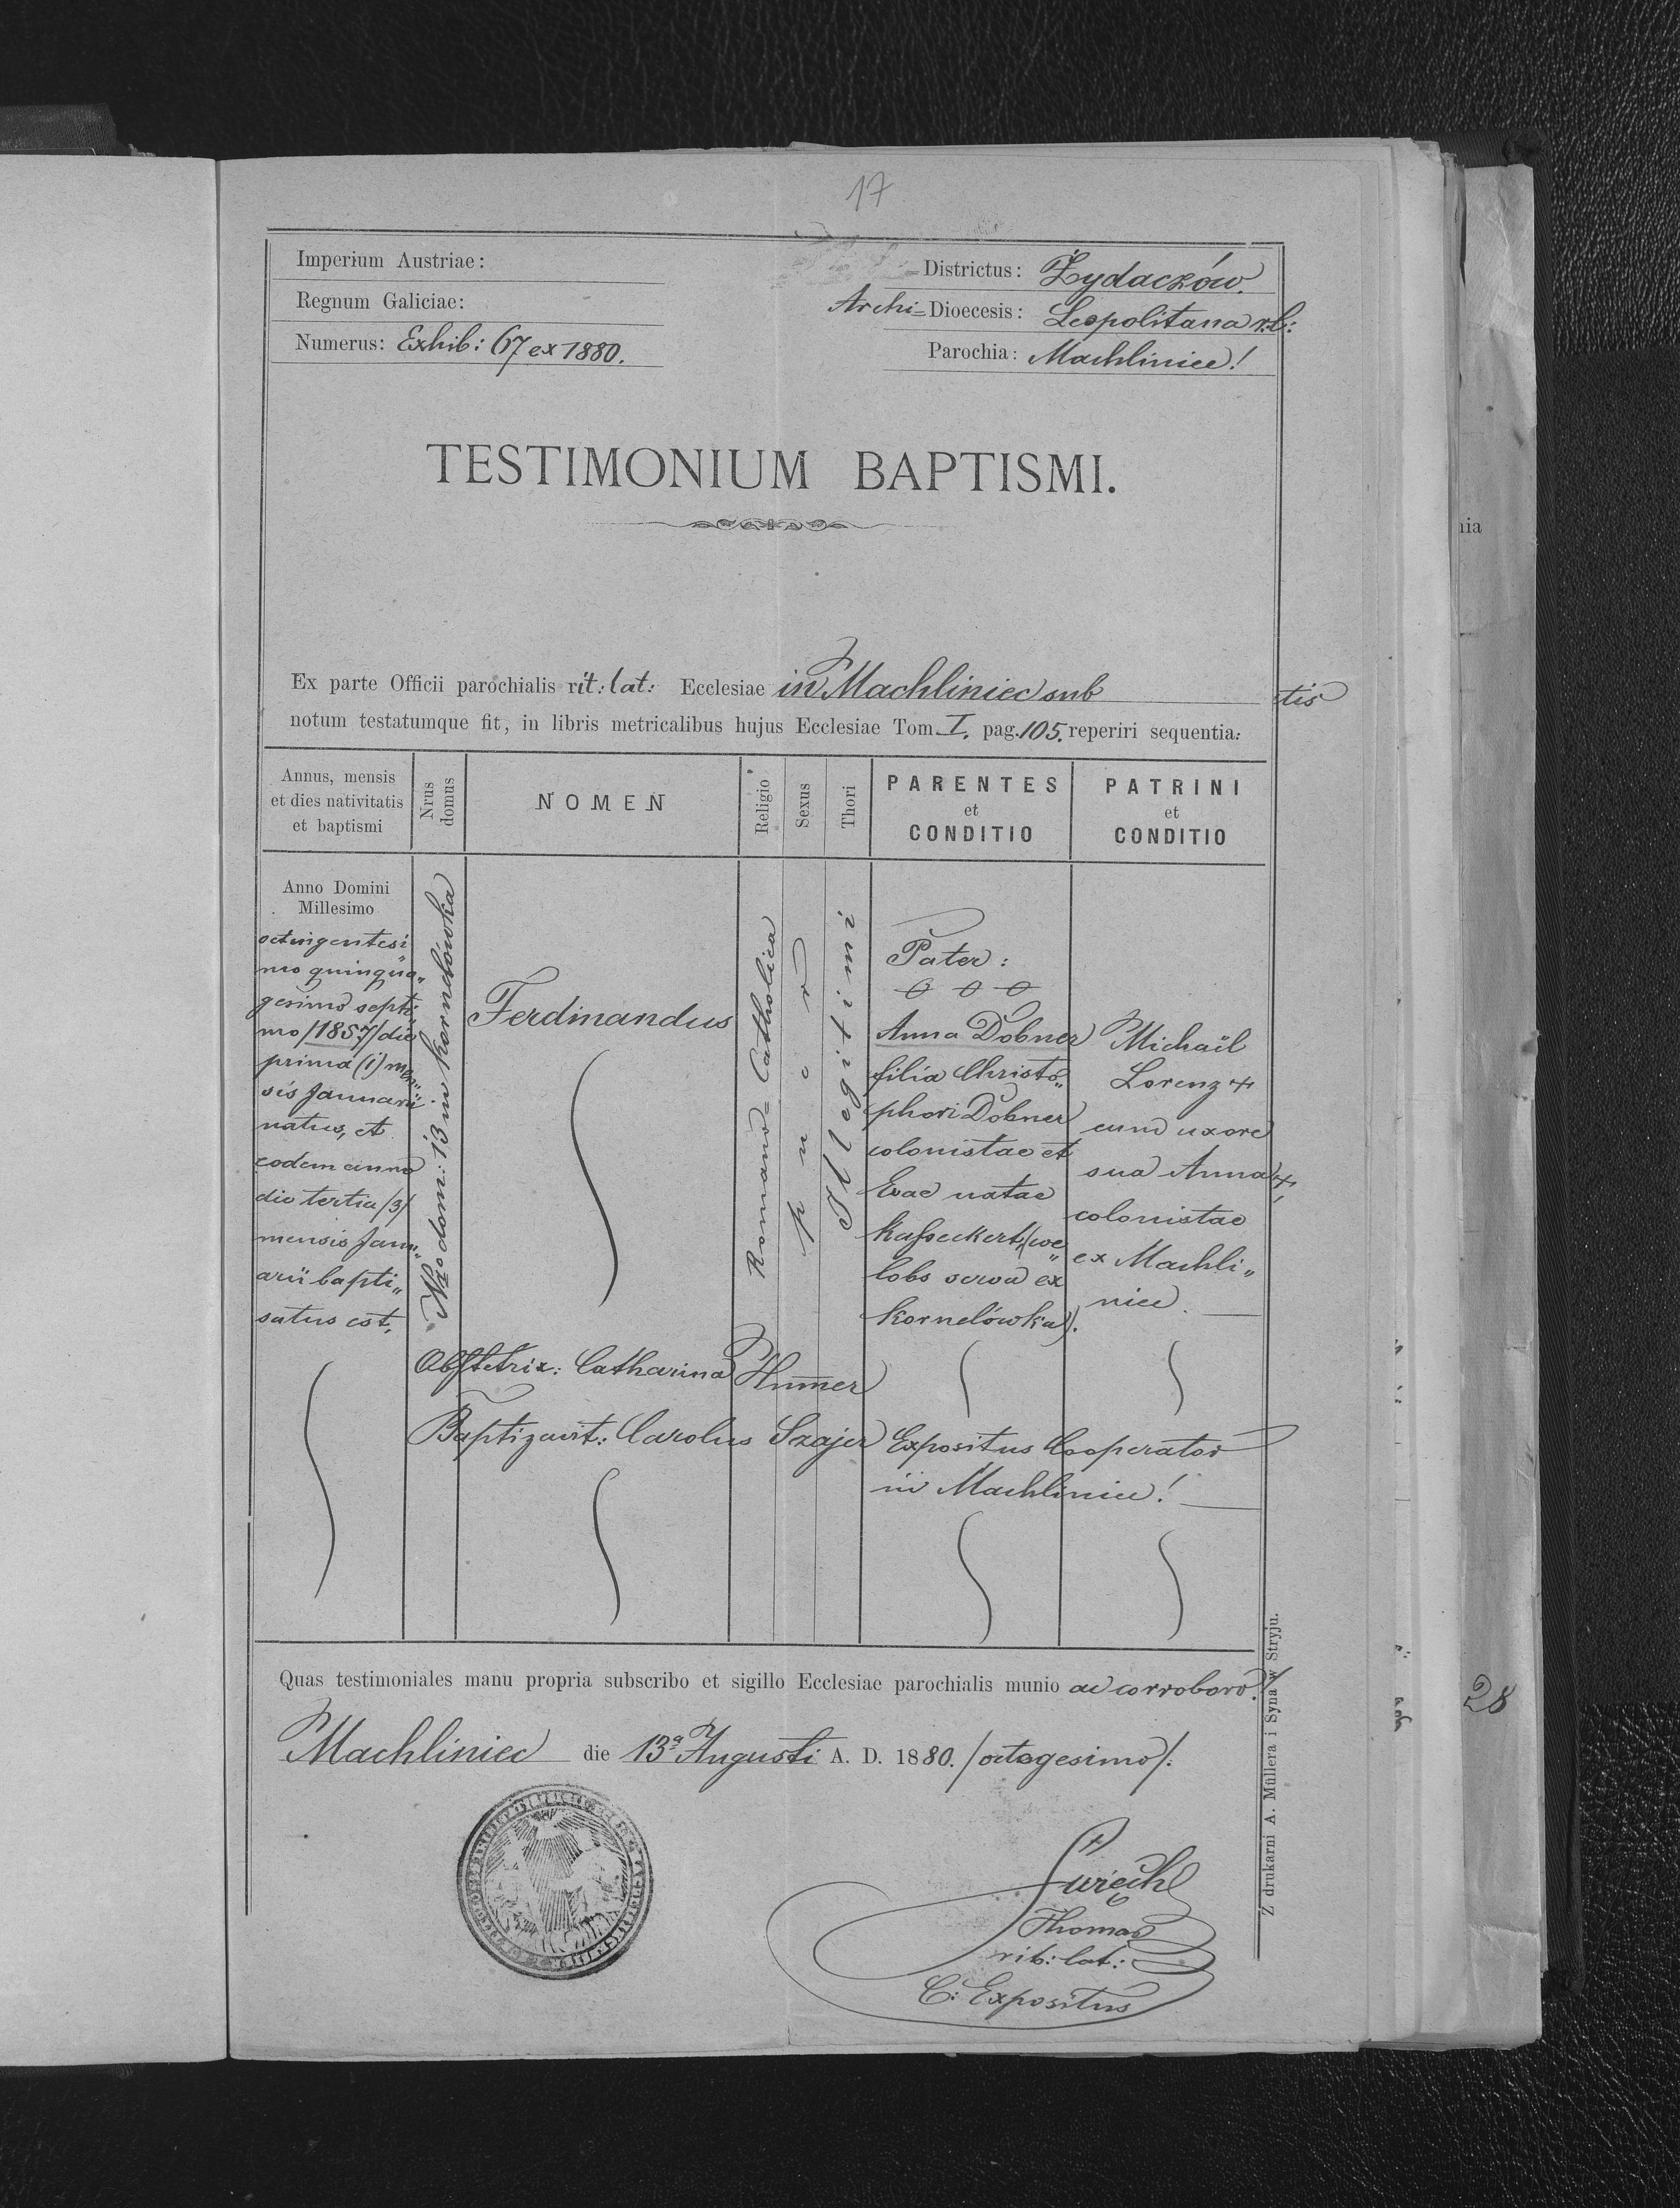 17
Imperium Austriae:
Regnum Galiciae:
Numerus: Exhib: 67 ex 1880.
Districtus: Żydaczów.
Archi-Dioecesis: Leopolitana r. l:
Parochia: Machliniec!
TESTIMONIUM BAPTISMI.
Ex parte Officii parochialis rit: lat: Ecclesiae in Machliniec sub tis
notum testatumque fit, in libris metricalibus hujus Ecclesiae Tom I. pag. 105. reperiri sequentia:
Annus, mensis
et dies nativitatis
et baptismi
Nrus
domus
NOMEN
Religio
Sexus
Thori
PARENTES
et
CONDITIO
PATRINI
et
CONDITIO
Anno Domini
Millesimo
octingentesi
mo quinqua„
gesimo septi„
mo /1857/ die
prima (1) men„
sis Januarii
natus, et
eodem anno
die tertia /3/
mensis Janu„
arii bapti„
satus est,
Nro dom: 13 in Kornelówka
Ferdinandus
Romano-Catholica
puer
Illegitimi
Pater:
o o o
Anna Dobner
filia Christo„
phori Dobner
colonistae et
Evae natae
Kasseckert, (coe„
lebs serva ex
Kornelówka).
Michaël
Lorenz +
cum uxore
sua Anna +,
colonistae
ex Machli„
niec.
Obstetrix: Catharina Hummer
Baptizavit: Carolus Szajer Expositus Cooperator
in Machliniec!
Quas testimoniales manu propria subscribo et sigillo Ecclesiae parochialis munio ac corroboro!
Machliniec die 13a Augusti A. D. 1880. /octogesimo/.
Thomas
rit: lat:
C: Expositus
Z drukarni A. Müllera i Syna w Stryju.
nia
28